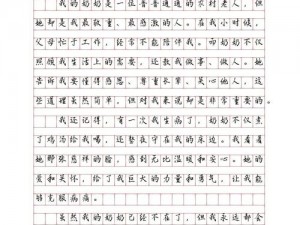 我的奶奶是一位普普通通的农村老人，但
她却是我最敬重、最感激的人。在我小时候，
父母忙于工作，经常不能陪伴我。而奶奶不仅
照顾我生活上的需要，还教我做事、做人。她
告诉我要懂得感恩、尊重长辈、关心他人，这
些道理虽然简单，但对我来说却是非常重要的。
我还记得，有一次我生病了，奶奶不仅煮
了鸡汤给我喝，还整夜守在我的床边。我看着
她那张慈祥的脸，感到无比温暖和安心。她的
爱和关怀，给了我巨大的力量和勇气，让我能
够克服病痛。
虽然我的奶奶已经不在了，但我永远都会